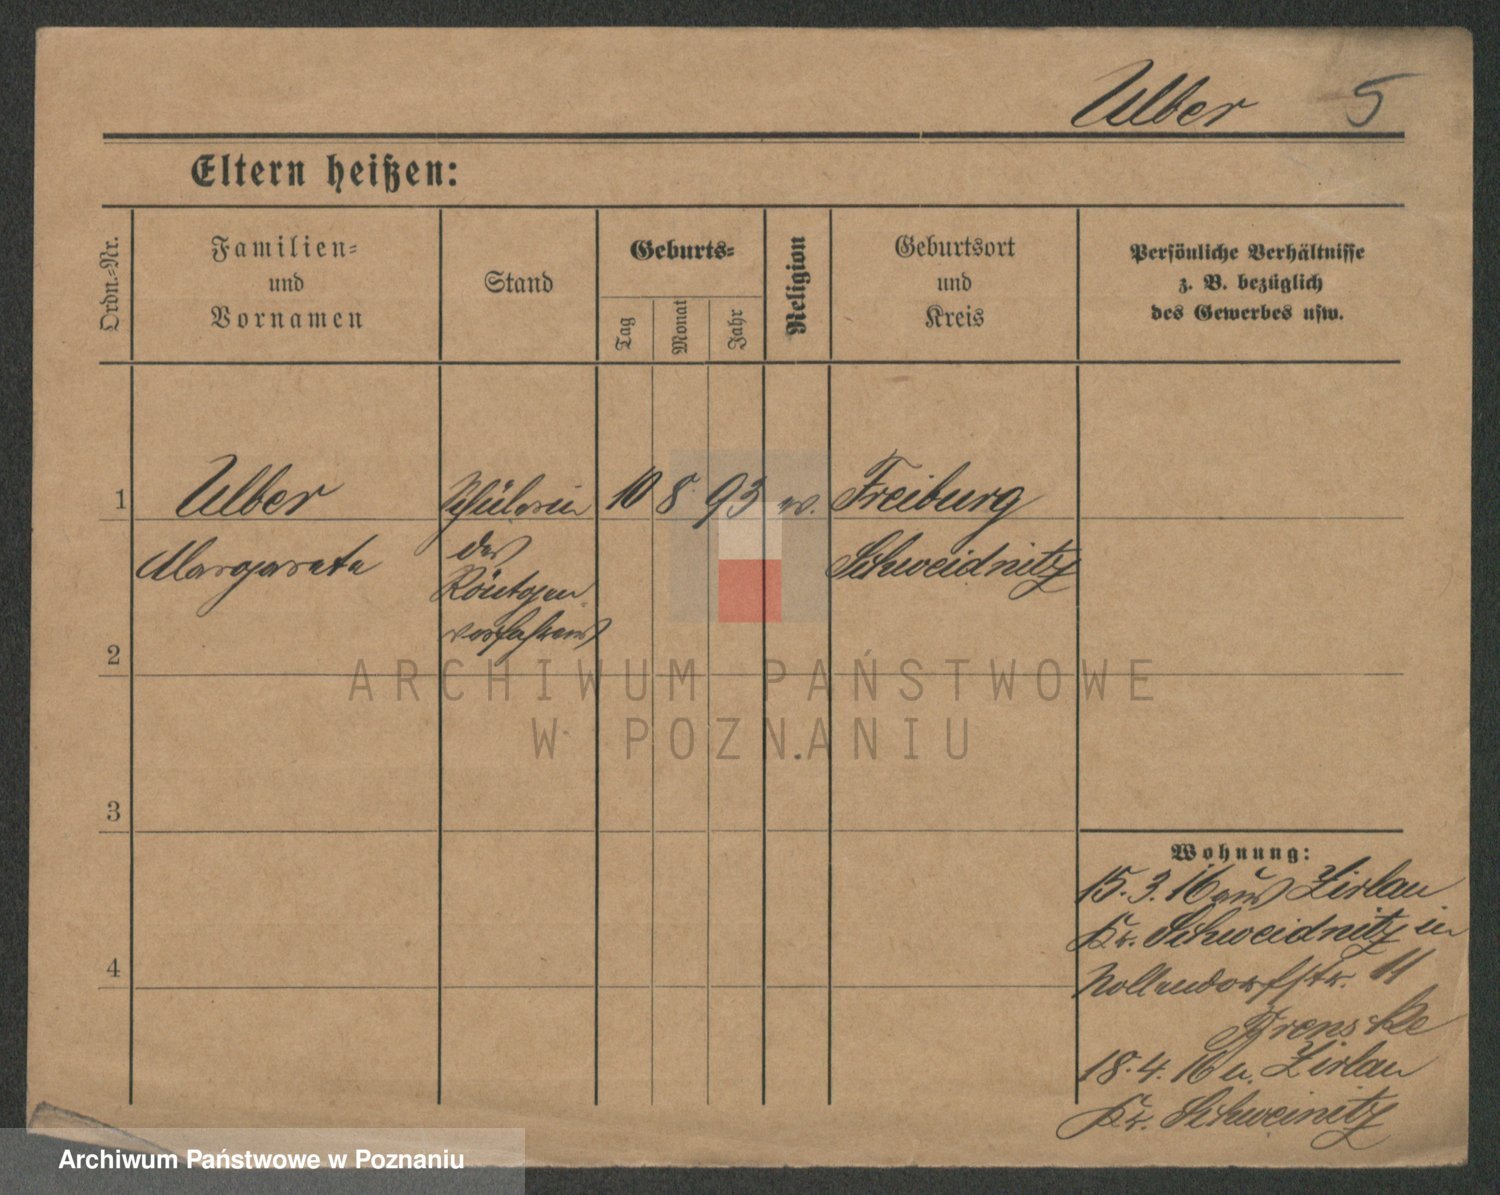 Ulber 5
Eltern heißen:
Ordn.=Nr.
Familien=
und
Vornamen
Stand
Geburts=
Tag
Monat
Jahr
Religion
Geburtsort
und
Kreis
Persönliche Verhältnisse
z. B. bezüglich
des Gewerbes usw.
1 Ulber Schülerin 10 8 93 ev. Freiburg
Margarete des Schweidnitz
Röntgen
verfahrens
2
3
4
Wohnung:
15.3.16 aus Zirlau
Kr. Schweidnitz in
Nollendorfstr. 11
18.4.16 n. Zirlau
Kr. Schweinitz
ARCHIWUM PAŃSTWOWE
W POZNANIU
Archiwum Państwowe w Poznaniu